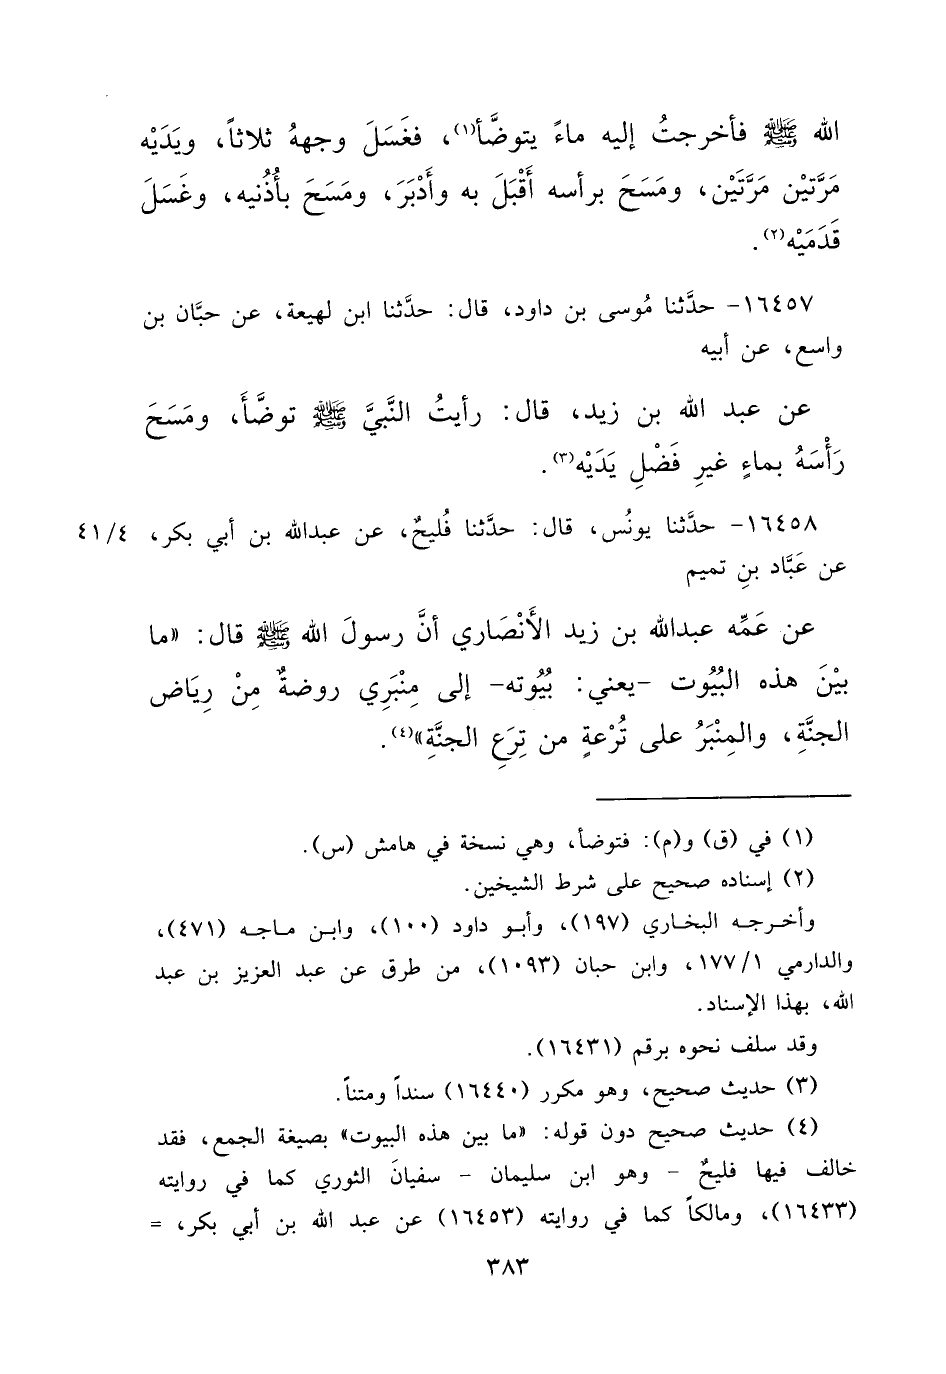 الله ﷺ فأخرجتُ إليه ماءً يتوضَّأ(١)، فغَسَلَ وجههُ ثلاثاً، ويَدَيْه
مَرَّتيْن مَرَّتَيْن، ومَسَحَ برأسه أَقْبَلَ به وأَدْبَرَ، ومَسَحَ بأُذُنيه، وغَسَلَ
قَدَمَيْه(٢).
١٦٤٥٧- حدَّثنا مُوسى بن داود، قال: حدَّثنا ابن لهيعة، عن حبَّان بن
واسع، عن أبيه
عن عبد الله بن زيد، قال: رأيتُ النَّبيَّ ﷺ توضَّأَ، ومَسَحَ
رَأْسَهُ بماءٍ غيرِ فَضْلِ يَدَيْه(٣).
١٦٤٥٨- حدَّثنا يونُس، قال: حدَّثنا فُليحٌ، عن عبدالله بن أبي بكر، ٤١/٤
عن عَبَّاد بنِ تميم
عن عَمِّه عبدالله بن زيد الأَنْصَاري أنَّ رسولَ الله ﷺ قال: «ما
بيْنَ هذه البُيُوت -يعني: بُيُوته- إلى مِنْبَرِي روضةٌ مِنْ رِيَاض
الجنَّةِ، والمِنْبَرُ على تُرْعةٍ من تِرَعِ الجنَّةِ»(٤).
(١) في (ق) و(م): فتوضأ، وهي نسخة في هامش (س).
(٢) إسناده صحيح على شرط الشيخين.
وأخرجه البخاري (١٩٧)، وأبو داود (١٠٠)، وابن ماجه (٤٧١)،
والدارمي ١٧٧/١، وابن حبان (١٠٩٣)، من طرق عن عبد العزيز بن عبد
الله، بهذا الإسناد.
وقد سلف نحوه برقم (١٦٤٣١).
(٣) حديث صحيح، وهو مكرر (١٦٤٤٠) سنداً ومتناً.
(٤) حديث صحيح دون قوله: «ما بين هذه البيوت» بصيغة الجمع، فقد
خالف فيها فليحٌ - وهو ابن سليمان - سفيانَ الثوري كما في روايته
(١٦٤٣٣)، ومالكاً كما في روايته (١٦٤٥٣) عن عبد الله بن أبي بكر، =
٣٨٣